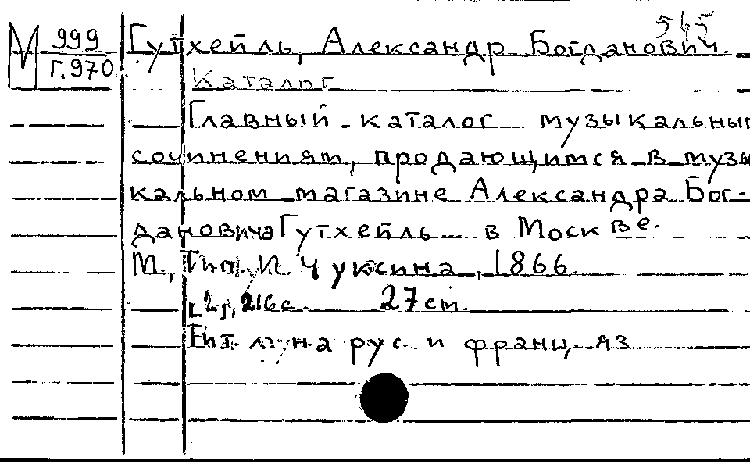 565
М 999
Г.970
Гутхейль, Александр Богданович.
Каталог
Главный каталог музыкальным
сочинениям, продающимся в музы
кальном магазине Александра Бог-
дановича Гутхейль в Москве.
М., Тип. И. Чуксина, 1866.
[2], 216 с. 27 cm.
Тит. на рус. и франц. яз